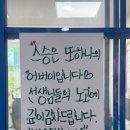 스승은 또하나의
어버이입니다
선생님들의 노고에
깊이감사드립니다.